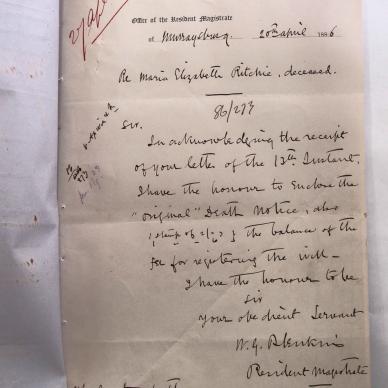 Office of the Resident Magistrate
of Murraysburg, 20th April 1886
Re Maria Elizabeth Ritchie, deceased.
86/273
Sir.
In acknowledging the receipt
of your letter of the 13th Instant,
I have the honour to enclose the
"original" Death Notice, also
the balance of the
fee for registering the will –
I have the honour to be
Sir
your obedient Servant
Resident Magistrate